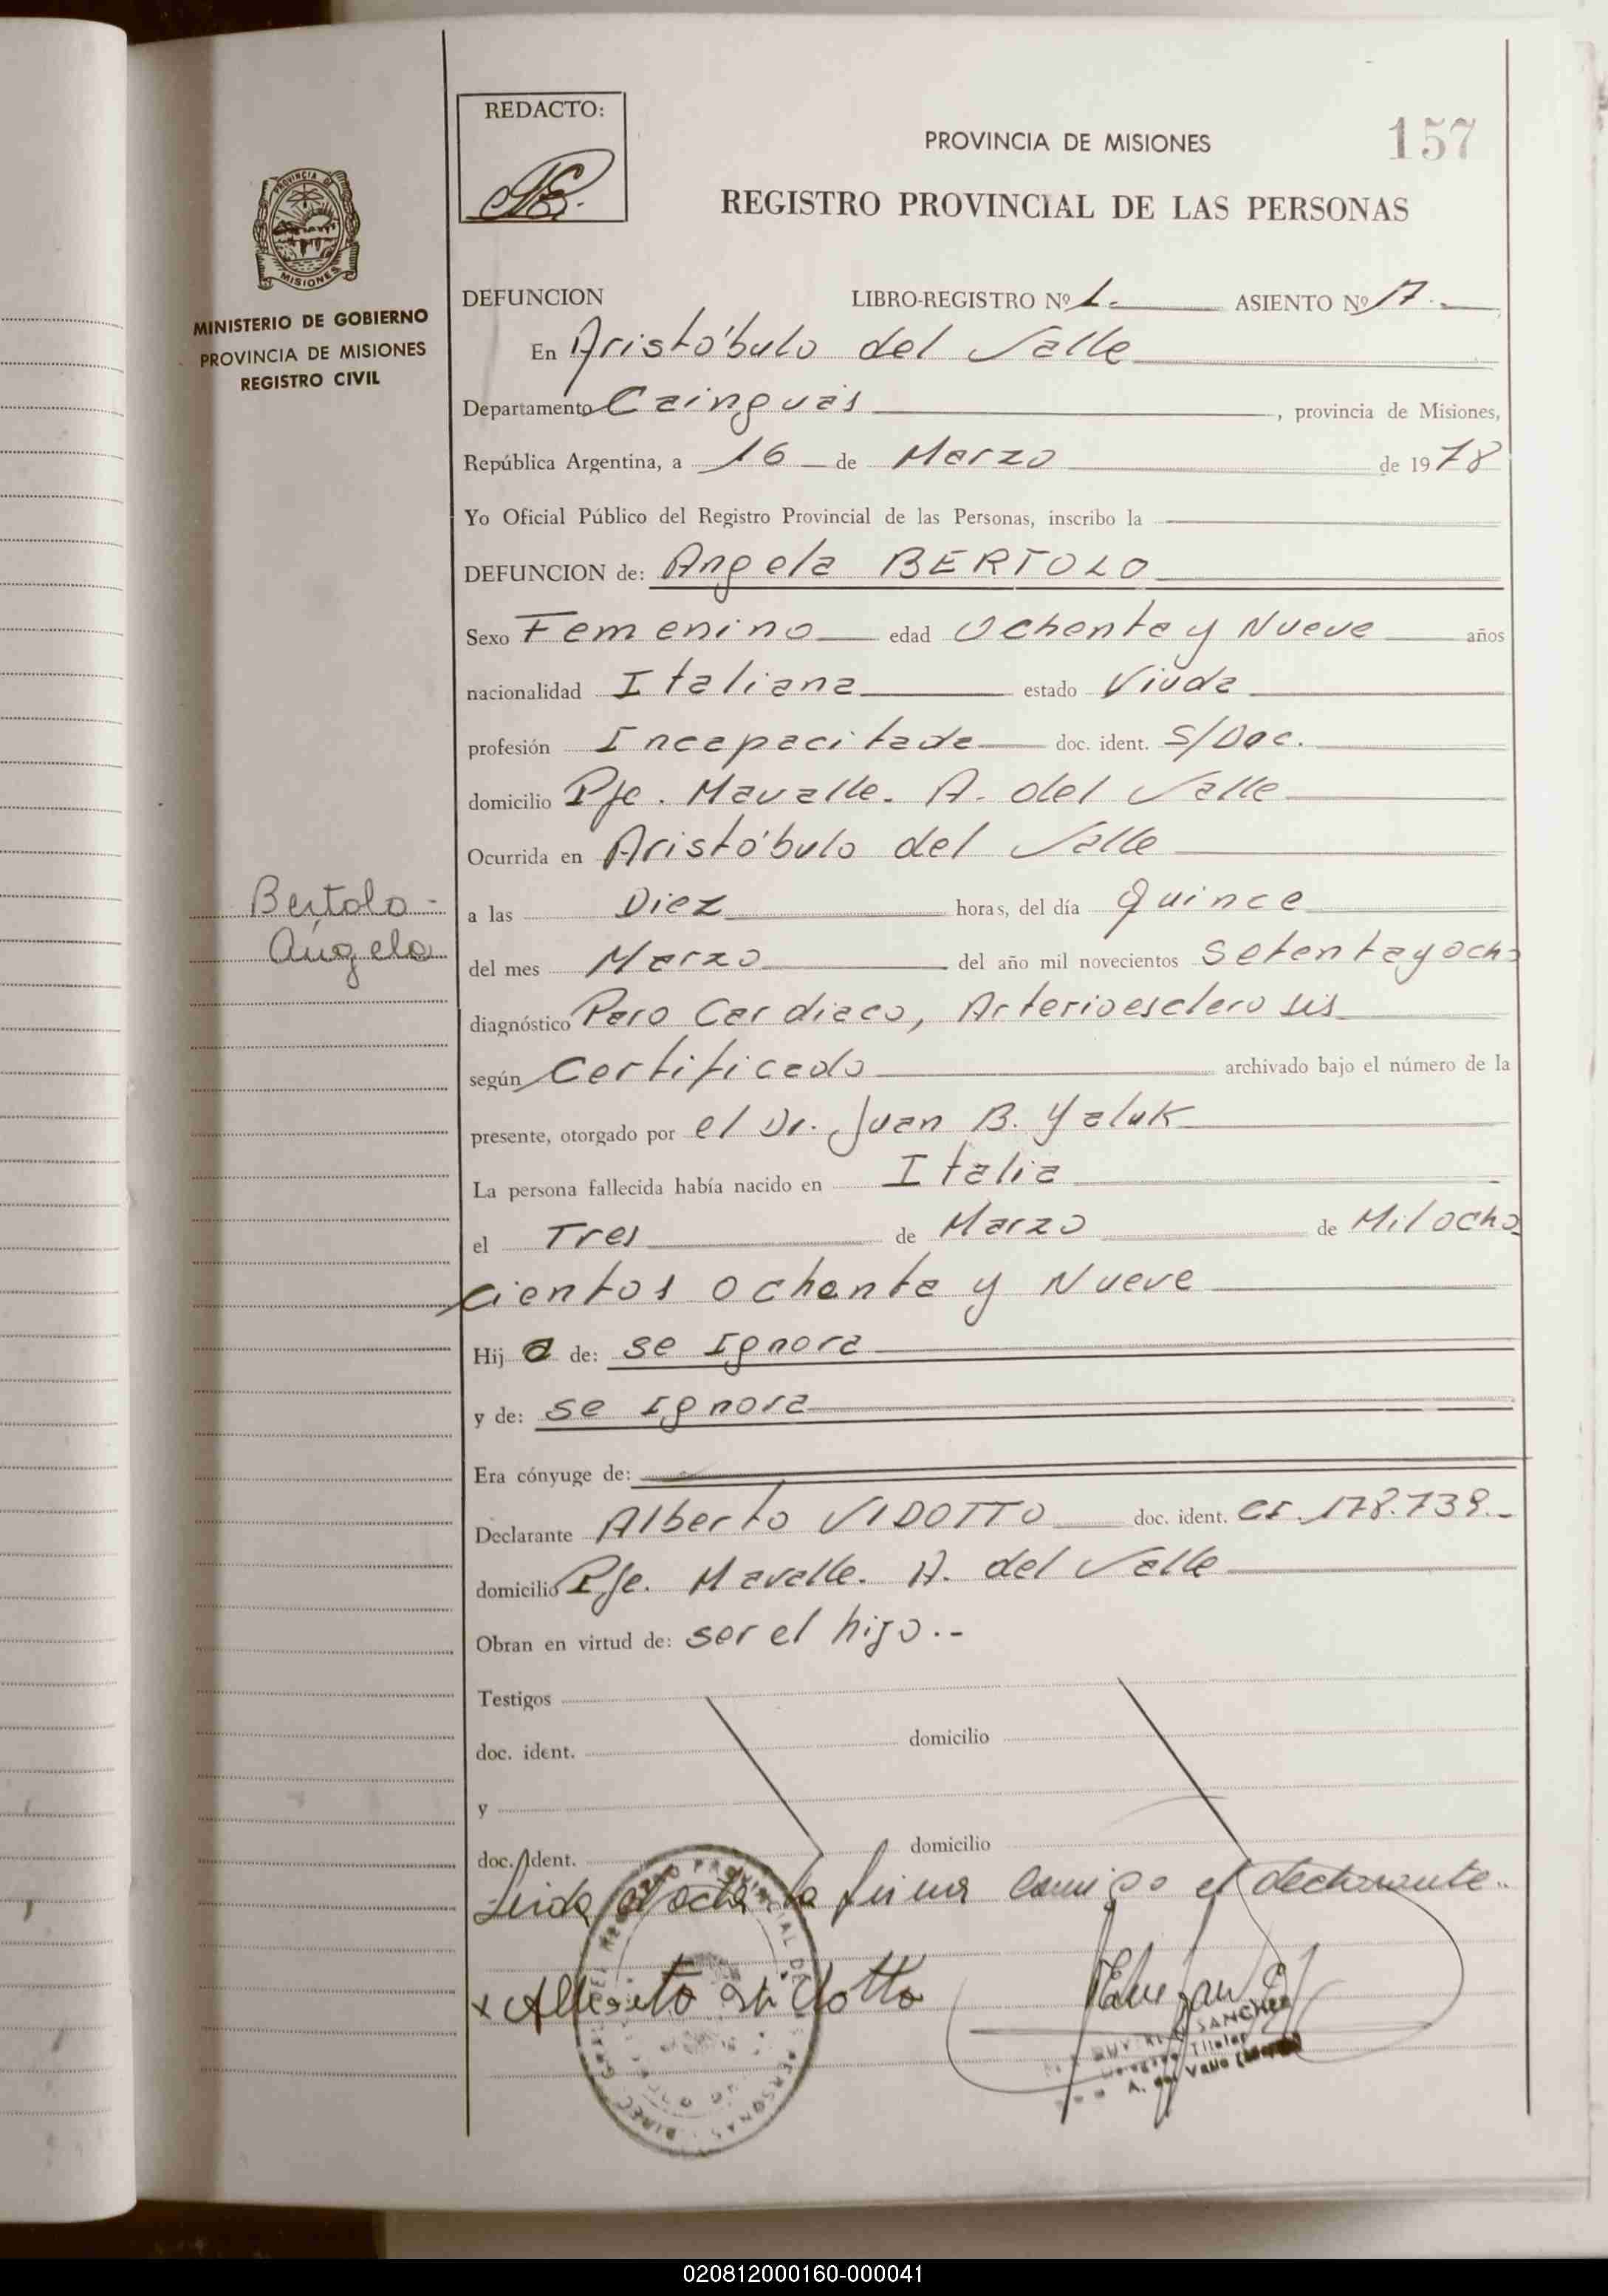 REDACTO:
PROVINCIA DE MISIONES
157
REGISTRO PROVINCIAL DE LAS PERSONAS
PROVINCIA DE
MISIONES
MINISTERIO DE GOBIERNO
PROVINCIA DE MISIONES
REGISTRO CIVIL
DEFUNCION LIBRO-REGISTRO Nº 1.- ASIENTO Nº 17.-
En Aristóbulo del Valle
Departamento Cainguás, provincia de Misiones,
República Argentina, a 16 de Marzo de 1978
Yo Oficial Público del Registro Provincial de las Personas, inscribo la
DEFUNCION de: Angela BERTOLO
Sexo Femenino edad Ochenta y Nueve años
nacionalidad Italiana estado Viuda
profesión Incapacitada doc. ident. S/Doc.
domicilio Pje. Mavalle. A. del Valle
Ocurrida en Aristóbulo del Valle
Bertolo -
Angela
a las Diez horas, del día Quince
del mes Marzo del año mil novecientos Setenta y ocho
diagnóstico Paro Cardiaco, Arterioesclerosis
según Certificado archivado bajo el número de la
presente, otorgado por el Dr. Juan B. Yaluk
La persona fallecida había nacido en Italia
el Tres de Marzo de Mil ocho
cientos ochenta y Nueve
Hij a de: se Ignora
y de: se Ignora
Era cónyuge de:
Declarante Alberto VIDOTTO doc. ident. CI. 178.739.-
domicilio Pje. Mavalle. A. del Valle
Obran en virtud de: ser el hijo.-
Testigos
doc. ident. domicilio
y
doc. ident. domicilio
Leida el acta la firma conmigo el declarante.-
x Alberto Vidotto
SANCHEZ
Titular
A. del Valle
020812000160-000041